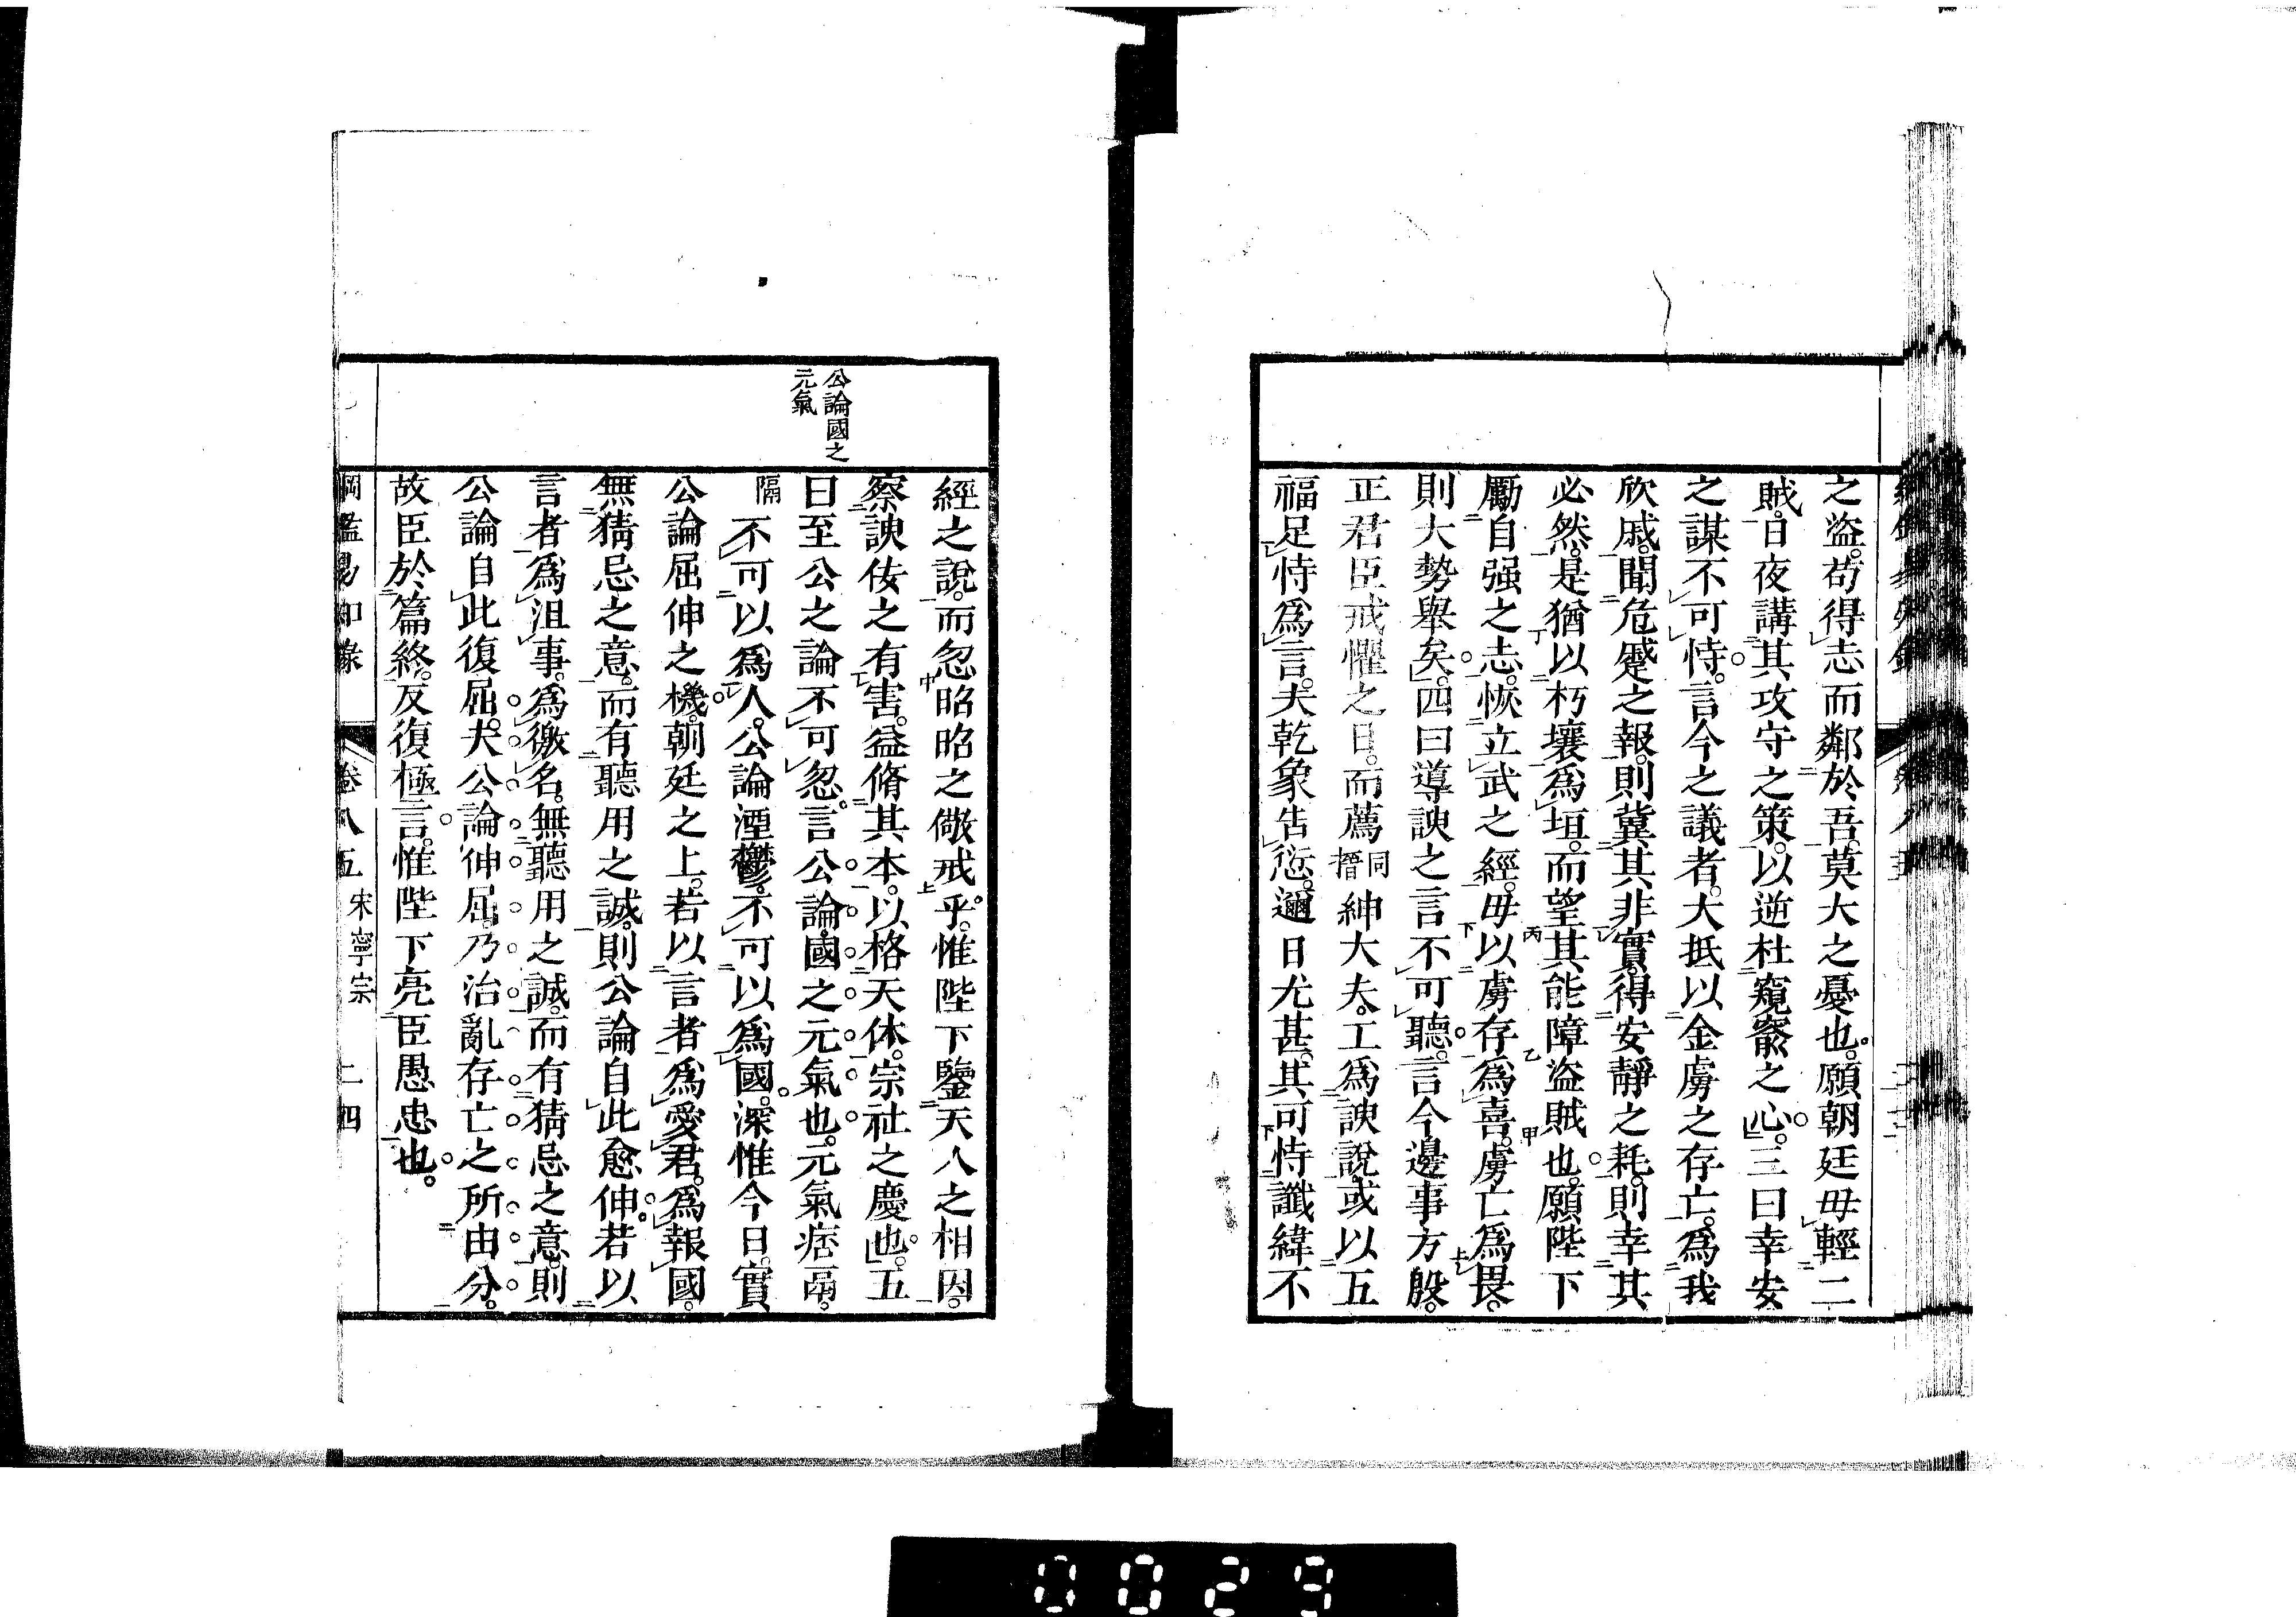 之盜。苟得志而鄰於吾。莫大之憂也。願朝廷毋輕二
賊。日夜講其攻守之策。以逆杜窺窬之心。三曰幸安
之謀不可恃。言今之議者。大抵以金虜之存亡。爲我
欣戚。聞危蹙之報。則冀其非實。得安靜之耗。則幸其
必然。是猶以朽壤爲垣。而望其能障盜賊也。願陛下
勵自强之志。恢立武之經。毋以虜存爲喜。虜亡爲畏。
則大勢舉矣。四曰導諛之言不可聽。言今邊事方殷。
正君臣戒懼之日。而薦同搢紳大夫。工爲諛說。或以五
福足恃爲言。夫乾象告愆。邇日尤甚。其可恃讖緯不
公論國之
元氣
經之說。而忽昭昭之儆戒乎。惟陛下鑒天人之相因。
察諛佞之有害。益脩其本。以格天休。宗社之慶也。五
曰至公之論不可忽。言公論。國之元氣也。元氣痞鬲。
隔不可以爲人。公論湮鬱。不可以爲國。深惟今日。實
公論屈伸之機。朝廷之上。若以言者爲愛君。爲報國。
無猜忌之意。而有聽用之誠。則公論自此愈伸。若以
言者爲沮事。爲徼名。無聽用之誠。而有猜忌之意。則
公論自此復屈。夫公論伸屈。乃治亂存亡之所由分。
故臣於篇終。反復極言。惟陛下亮臣愚忠也。
綱鑑易知錄 卷八五 宋寧宗 二四
0029